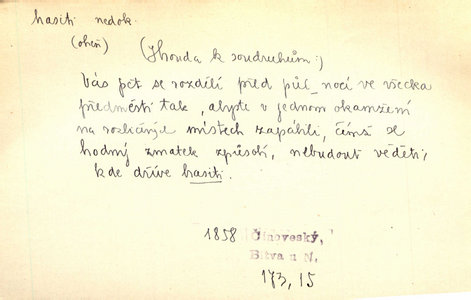 hasiti nedok.
(oheň) (Honda k soudruhům:)
Vás pět se rozdělí před půl_nocí ve všecka
předměstí tak, abyste v jednom okamžení
na rozličných místech zapálili, čímž se
hodný zmatek způsobí, nebudouť věděti,
kde dříve hasiti.
1858 Činoveský,
Bitva u N.
173, 15